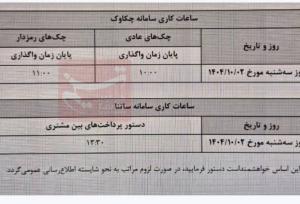 ساعات کاری سامانه چکاوک
روز و تاریخ چک‌های عادی چک‌های رمزدار
پایان زمان واگذاری پایان زمان واگذاری
روز سه‌شنبه مورخ ۱۴۰۴/۱۰/۰۲ ۱۰:۰۰ ۱۱:۰۰
ساعات کاری سامانه ساتنا
روز و تاریخ دستور پرداخت‌های بین مشتری
روز سه‌شنبه مورخ ۱۴۰۴/۱۰/۰۲ ۱۳:۳۰
این اساس خواهشمنداست دستور فرمایید، در صورت لزوم مراتب به نحو شایسته اطلاع‌رسانی عمومی‌گردد